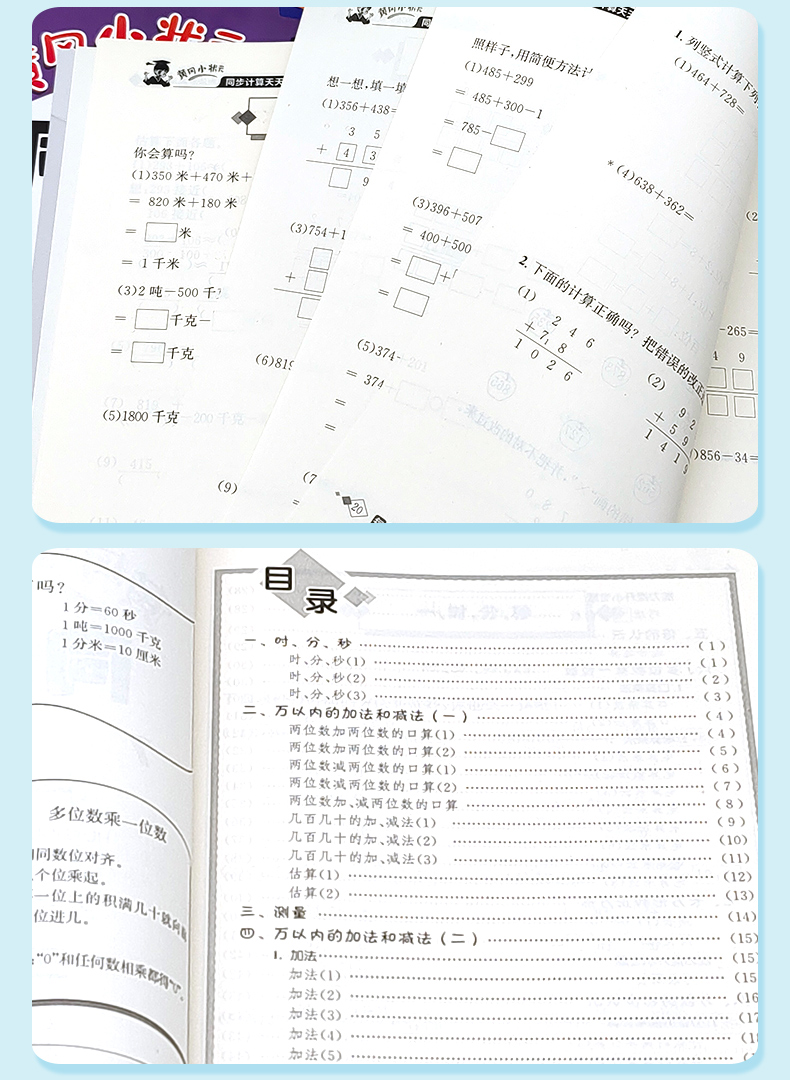 黄冈小状元
黄冈小状元
同步计算天天
你会算吗?
(1)350 米+470 米+
= 820 米+180 米
= 米
= 1 千米
(3)2 吨-500 千
= 千克-
= 千克
(5)1800 千克
(6)819
(9)
想一想,填一填
(1)356+438=
3 5
+ 4 3
9
(3)754+1
+
(7
=
照样子,用简便方法计
(1)485+299
= 485+300-1
= 785-
=
(3)396+507
= 400+500
= +
=
(5)374-201
= 374-
=
=
20
1. 列竖式计算下列
(1)464+728=
*(4)638+362=
2. 下面的计算正确吗? 把错误的改正
(1)
2 4 6
+ 7 8
1 0 2 6
(2)
9 2
+ 5 9
1 4 1 9
(2
-265=
4 9
)856-34=
吗?
1 分=60 秒
1 吨=1000 千克
1 分米=10 厘米
多位数乘一位数
同数位对齐。
个位乘起。
一位上的积满几十就向前
位进几。
:“0”和任何数相乘都得“0”。
目录
一、时、分、秒 (1)
时、分、秒(1) (1)
时、分、秒(2) (2)
时、分、秒(3) (3)
二、万以内的加法和减法(一) (4)
两位数加两位数的口算(1) (4)
两位数加两位数的口算(2) (5)
两位数减两位数的口算(1) (6)
两位数减两位数的口算(2) (7)
两位数加、减两位数的口算 (8)
几百几十的加、减法(1) (9)
几百几十的加、减法(2) (10)
几百几十的加、减法(3) (11)
估算(1) (12)
估算(2) (13)
三、测量 (14)
四、万以内的加法和减法(二) (15)
1. 加法 (15)
加法(1) (15
加法(2) (16
加法(3) (17
加法(4) (18
加法(5)